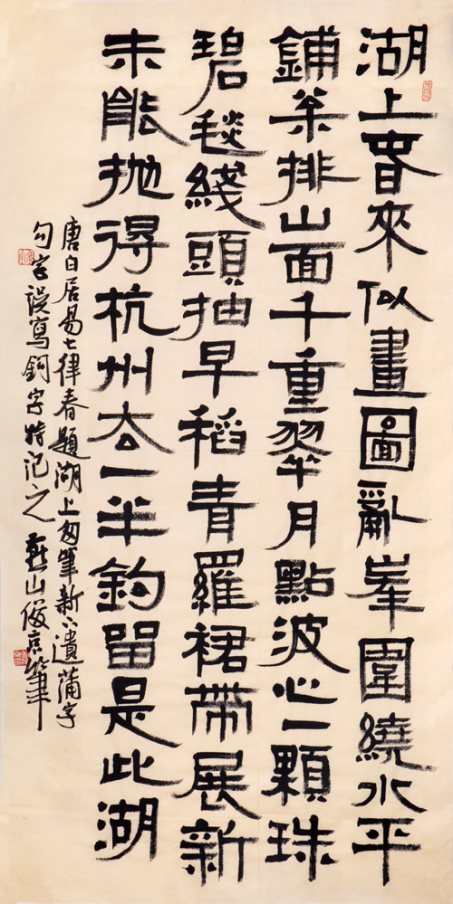 湖上春來似畫圖亂峯圍繞水平
鋪枀排山面千重翠月點波心一顆珠
碧毯綫頭抽早稻青羅裙帶展新
未能拋得杭州去一半鈎留是此湖
唐白居易七律春題湖上匆筆新下遺蒲字
句字誤寫鈎字特記之燕山俊京筆